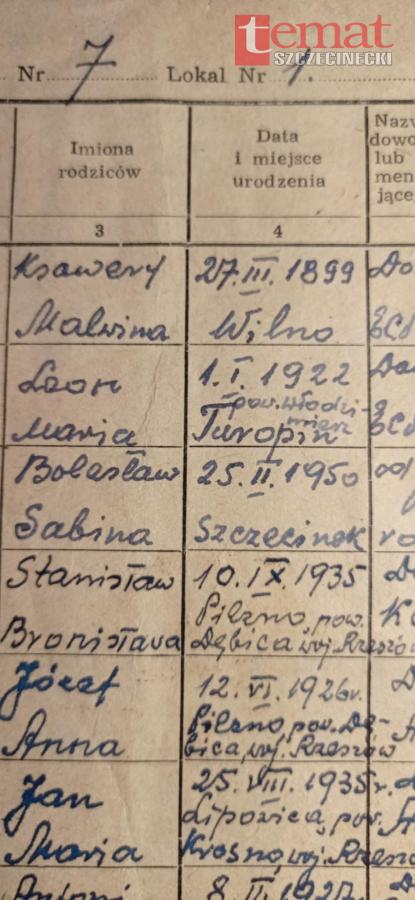 temat
SZCZECINECKI
Nr 7 Lokal Nr 1.
Imiona
rodziców
Data
i miejsce
urodzenia
Nazw
dowo
lub
men
jące
3
4
Ksawery 27.III.1899 Do
Malwina Wilno
Leon 1.I.1922 Do
pow. Włodzi-
mierz
Maria Turopin
Bolesław 25.II.1950 od
Sabina Szczecinek ro
Stanisław 10.IX.1935 Do
Pilzno, pow.
Bronisława Dębica, woj. Rzeszów
Józef 12.VI.1926r. D
Pilzno, pow. Dę-
Anna bica, woj. Rzeszów
Jan 25.VIII.1935r.
Lipowica, pow.
Maria Krosno, woj. Rzeszów
Antoni 8.II.1927.